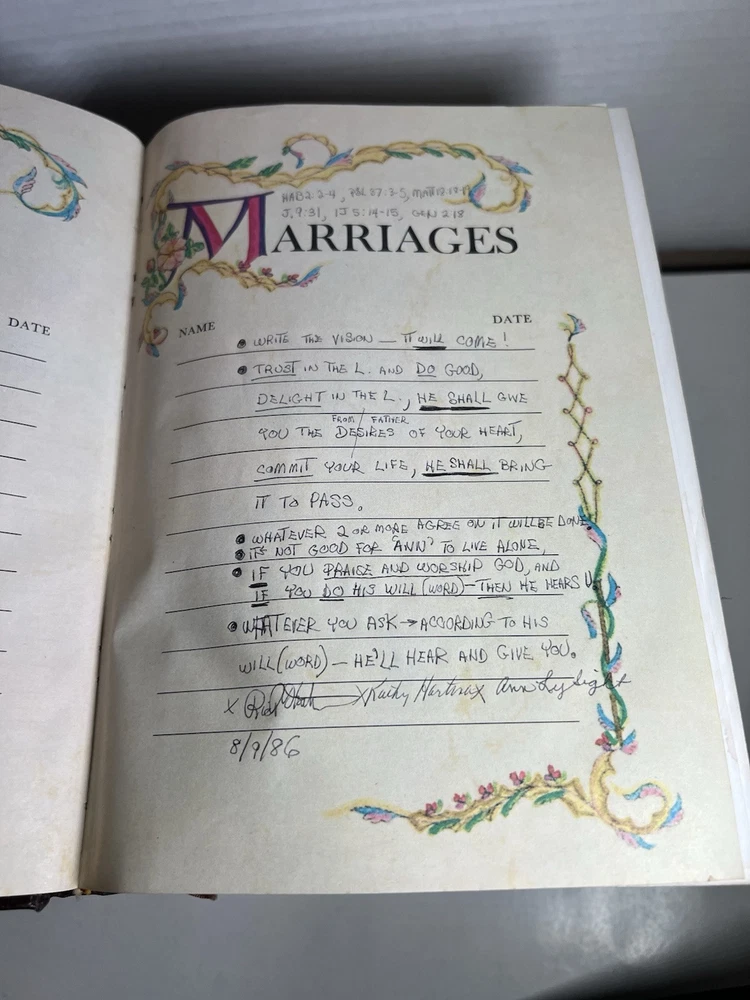 HAB 2:2-4, PSL 37:3-5, MATT 18:18-19
J, 9:31, 1J 5:14-15, GEN 2 18
MARRIAGES
DATE
NAME
DATE
• WRITE THE VISION — IT WILL COME!
• TRUST IN THE L. AND DO GOOD,
DELIGHT IN THE L., HE SHALL GIVE
FROM FATHER
YOU THE DESIRES OF YOUR HEART,
COMMIT YOUR LIFE, HE SHALL BRING
IT TO PASS.
• WHATEVER 2 OR MORE AGREE ON IT WILL BE DONE
• IT'S NOT GOOD FOR "ANN" TO LIVE ALONE,
• IF YOU PRAISE AND WORSHIP GOD, AND
IF YOU DO HIS WILL (WORD) — THEN HE HEARS U.
• WHATEVER YOU ASK → ACCORDING TO HIS
WILL (WORD) — HE'LL HEAR AND GIVE YOU.
X X Kathy X Ann
8/9/86